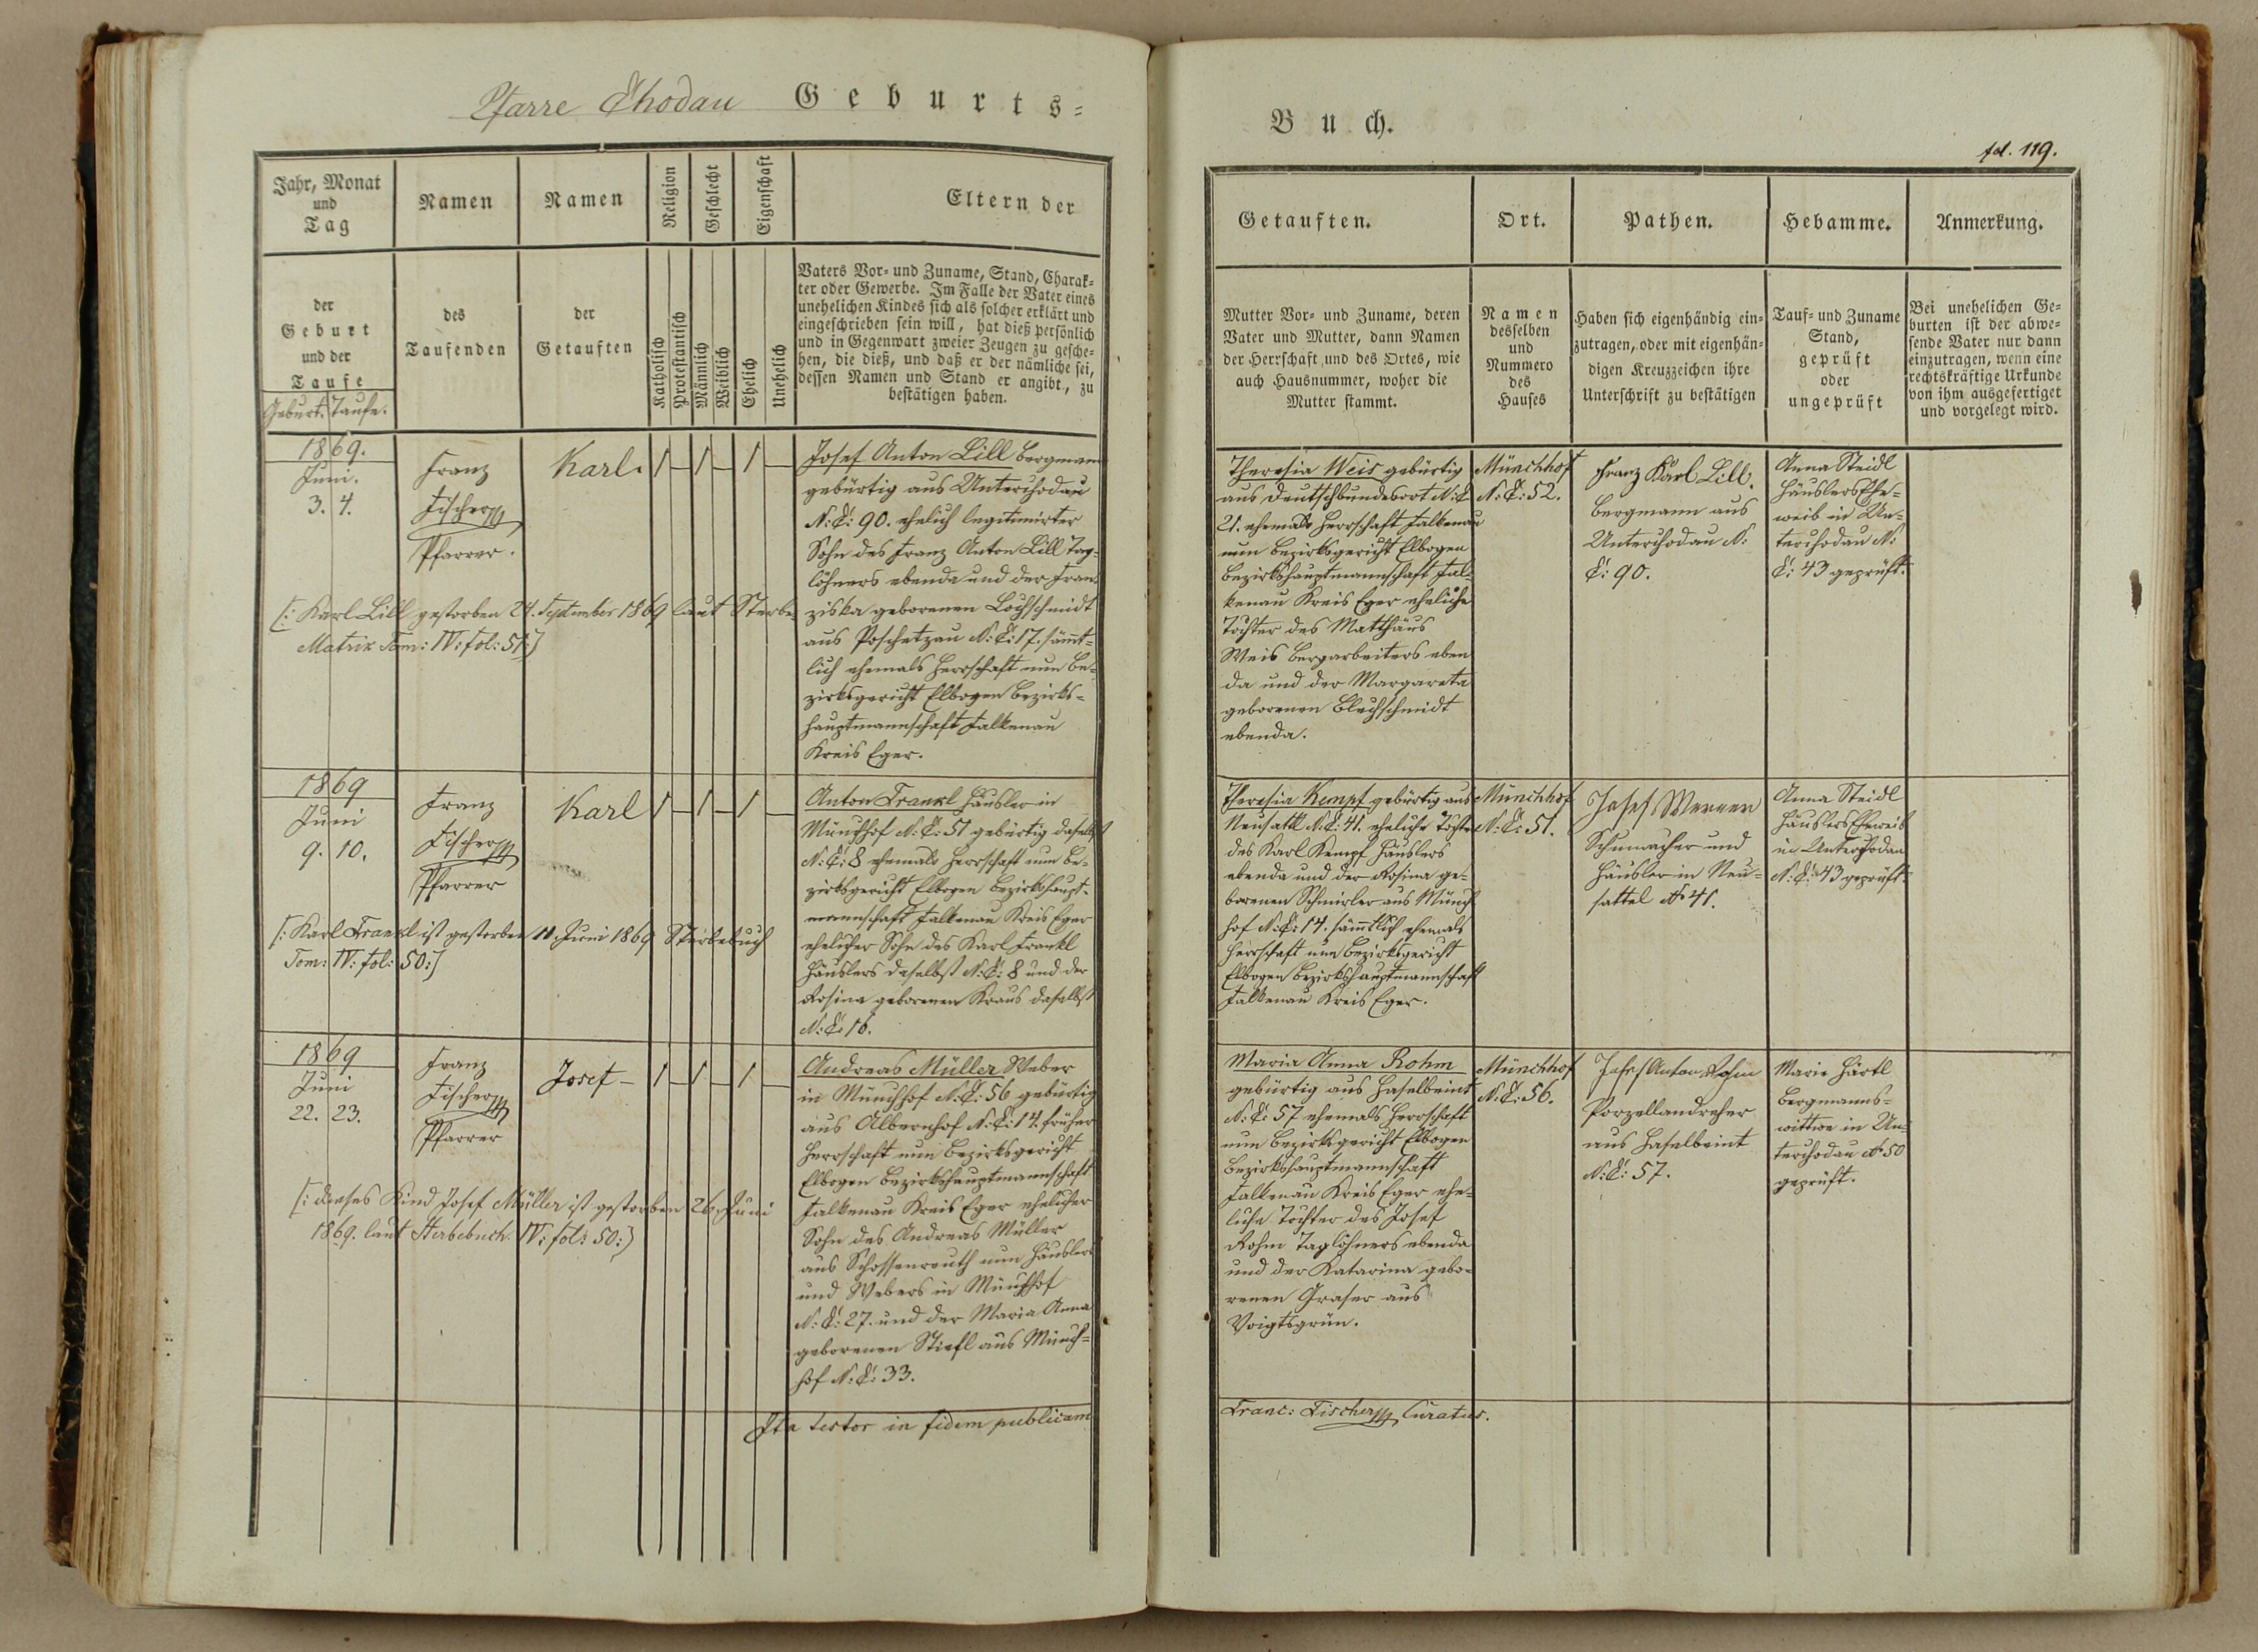 Pfarre Chodau Geburts-
Jahr, Monat
und
Tag
Namen
Namen
Religion
Geschlecht
Eigenschaft
Eltern der
der
Geburt
und der
Taufe
Geburt. Taufe.
des
Taufenden
der
Getauften
Katholisch
Protestantisch
Männlich
Weiblich
Ehelich
Unehelich
Vaters Vor- und Zuname, Stand, Charak-
ter oder Gewerbe. Im Falle der Vater eines
unehelichen Kindes sich als solcher erklärt und
eingeschrieben sein will, hat dieß persönlich
und in Gegenwart zweier Zeugen zu gesche-
hen, die dieß, und daß er der nämliche sei,
dessen Namen und Stand er angibt, zu
bestätigen haben.
1869.
Juni.
3. 4.
Franz
Fischer
Pfarrer.
Karl.
1 1 1
Josef Anton Lill Bergmann
gebürtig aus Unterchodau
N: C: 90. ehelich legitimirter
Sohn des Franz Anton Lill Tag-
löhners ebenda und der Fran-
ziska geborenen Lochschmidt
aus Poschetzau N: C: 17. sämt-
lich ehemals Herrschaft nun Be-
zirksgericht Elbogen Bezirks-
hauptmannschaft Falkenau
Kreis Eger.
[: Karl Lill gestorben 24. September 1869 laut Sterbe
Matrix Tom: IV: fol: 51:]
1869
Juni
9. 10.
Franz
Fischer
Pfarrer
Karl
1 1 1
Anton Frankl Häusler in
Münchhof N: C: 51 gebürtig daselbst
N: C: 8 ehemals Herrschaft nun Be-
zirksgericht Elbogen Bezirkshaupt-
mannschaft Falkenau Kreis Eger
ehelicher Sohn des Karl Frankl
Häuslers daselbst N: C: 8 und der
Rosina geborenen Kraus daselbst
N: C: 16.
[: Karl Frankl ist gestorben 11. Juni 1869 Sterbebuch
Tom: IV: fol: 50:]
1869
Juni
22. 23.
Franz
Fischer
Pfarrer
Josef
1 1 1
Andreas Müller Weber
in Münchhof N: C: 56 gebürtig
aus Albernhof N: C: 14. früher
Herrschaft nun Bezirksgericht
Elbogen Bezirkshauptmannschaft
Falkenau Kreis Eger ehelicher
Sohn des Andreas Müller
aus Schossenreuth nun Häuslers
und Webers in Münchhof
N: C: 27. und der Maria Anna
geborenen Stiefl aus Münch-
hof N: C: 33.
[: dieses Kind Josef Müller ist gestorben 26. Juni
1869. laut Sterbebuch. IV: fol: 50:]
Ita testor in fidem publicam
Buch.
fol. 119.
Getauften.
Ort.
Pathen.
Hebamme.
Anmerkung.
Mutter Vor- und Zuname, deren
Vater und Mutter, dann Namen
der Herrschaft und des Ortes, wie
auch Hausnummer, woher die
Mutter stammt.
Namen
desselben
und
Nummero
des
Hauses
Haben sich eigenhändig ein-
zutragen, oder mit eigenhän-
digen Kreuzzeichen ihre
Unterschrift zu bestätigen
Tauf- und Zuname
Stand,
geprüft
oder
ungeprüft
Bei unehelichen Ge-
burten ist der abwe-
sende Vater nur dann
einzutragen, wenn eine
rechtskräftige Urkunde
von ihm ausgefertiget
und vorgelegt wird.
Theresia Weis gebürtig
aus Deutschbundesort N: C
21. ehemals Herrschaft Falkenau
nun Bezirksgericht Elbogen
Bezirkshauptmannschaft Fal-
kenau Kreis Eger eheliche
Tochter des Matthäus
Weis Bergarbeiters eben
da und der Margareta
geborenen Blechschmidt
ebenda.
Münchhof
N: C: 52.
Franz Karl Lill.
Bergmann aus
Unterchodau N:
C: 90.
Anna Steidl
Häuslers Ehe-
weib in Un-
terchodau N:
C: 43 geprüft.
Theresia Kempf gebürtig aus
Neusattl N: C: 41. eheliche Tochter
des Karl Kempf Häuslers
ebenda und der Rosina ge-
borenen Schmirler aus Münch
hof N: C: 14. sämtlich ehemals
Herrschaft nun Bezirksgericht
Elbogen Bezirkshauptmannschaft
Falkenau Kreis Eger.
Münchhof
N: C: 51.
Josef Werner
Schumacher und
Häusler in Neu-
sattel No 41.
Anna Steidl
Häuslers Eheweib
in Unterchodau
N: C: 43 geprüft.
Maria Anna Rohm
gebürtig aus Haselbrint
N: C: 57 ehemals Herrschaft
nun Bezirksgericht Elbogen
Bezirkshauptmannschaft
Falkenau Kreis Eger ehe-
liche Tochter des Josef
Rohm Taglöhners ebenda
und der Katarina gebo-
renen Graser aus
Voigtsgrün.
Münchhof
N: C: 56.
Josef Anton Rohm
Porzellandreher
aus Haselbrint
N: C: 57.
Marie Härtl
Bergmanns-
wittwe in Un-
terchodau No 50
geprüft.
Franc: Fischer Curatus.